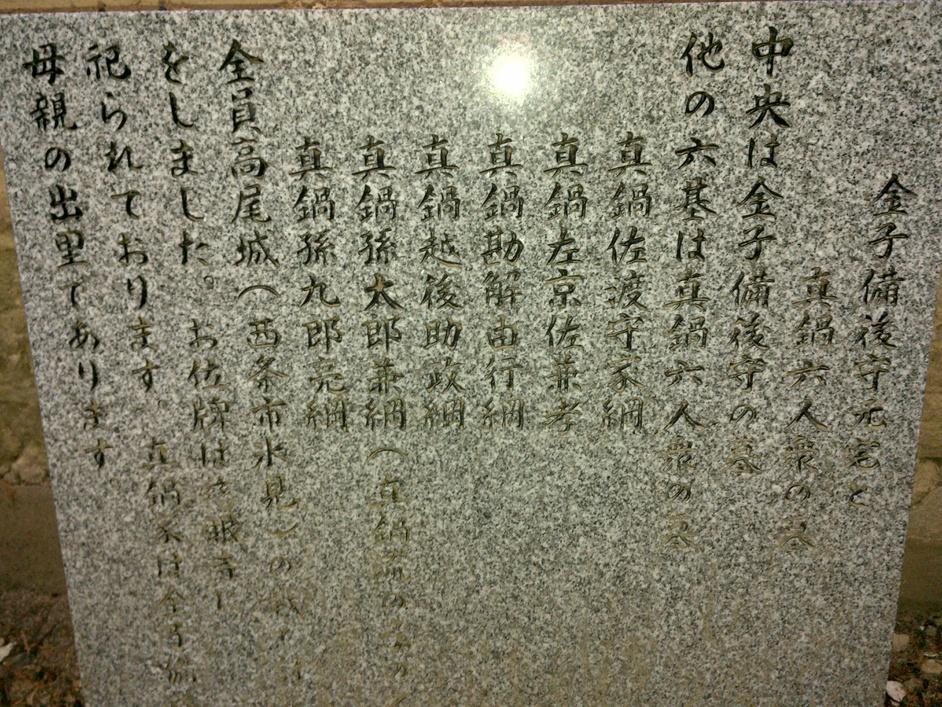 金子備後守元宅と
真鍋六人衆の墓
中央は金子備後守の墓
他の六基は真鍋六人衆の墓
真鍋佐渡守家綱
真鍋左京佐兼孝
真鍋勘解由行綱
真鍋越後助政綱
真鍋孫太郎兼綱(真鍋
真鍋孫九郎元綱
全員高尾城(西条市氷見)の戦
をしました。お佐牌は
祀られております。真鍋家は金子備
母親の出里であります。